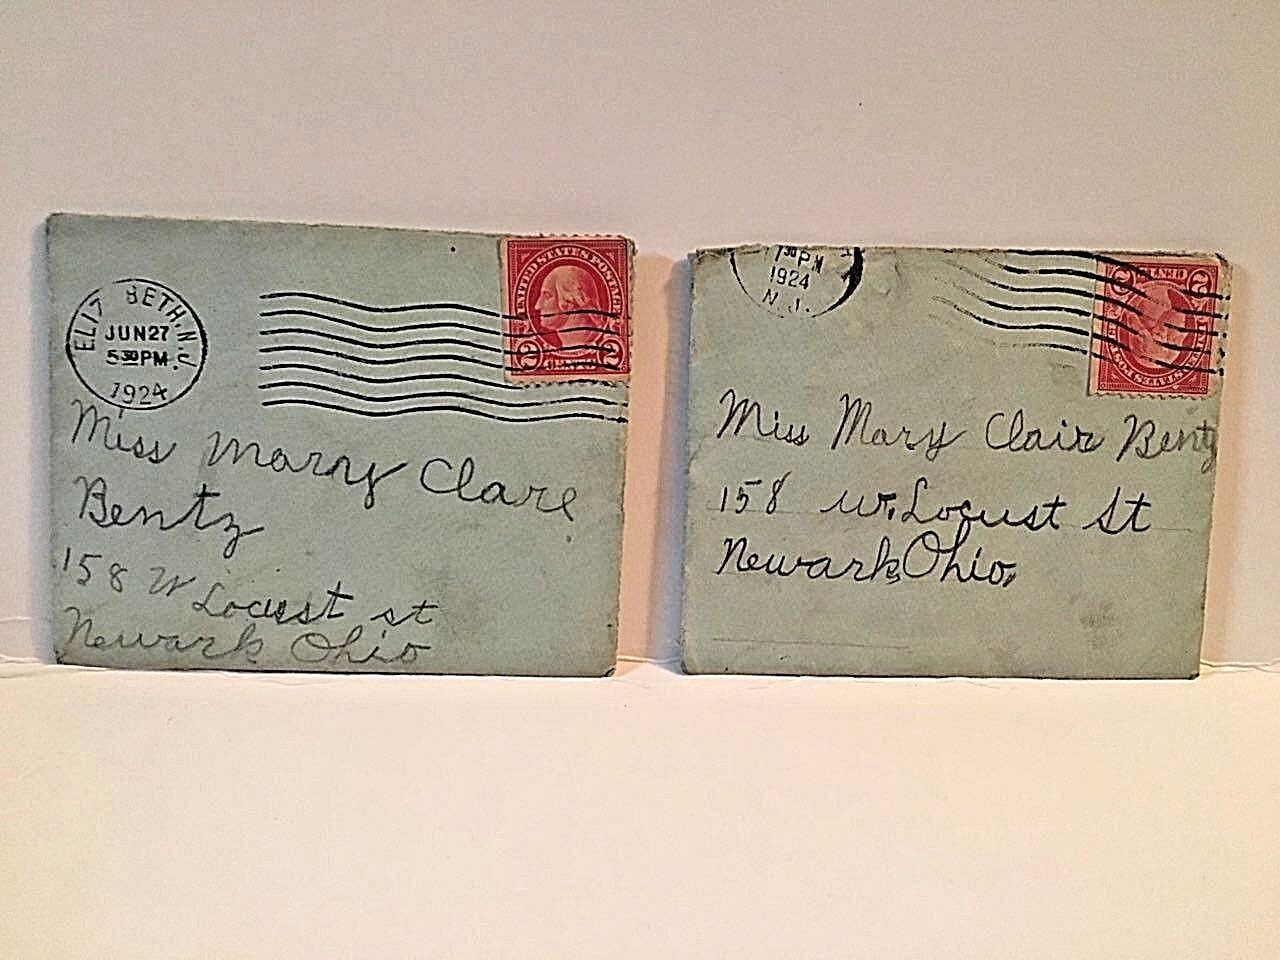 ELIZ BETH, N.J.
JUN 27
5 30 PM
1924
UNITED STATES POSTAGE
2 CENTS 2
Miss Marry Clare
Bentz
158 W Locust st
Newark Ohio
7 30 PM
1924
N.J.
2 CENTS 2
Miss Mary Clair Bentz
158 W. Locust St
Newark, Ohio,